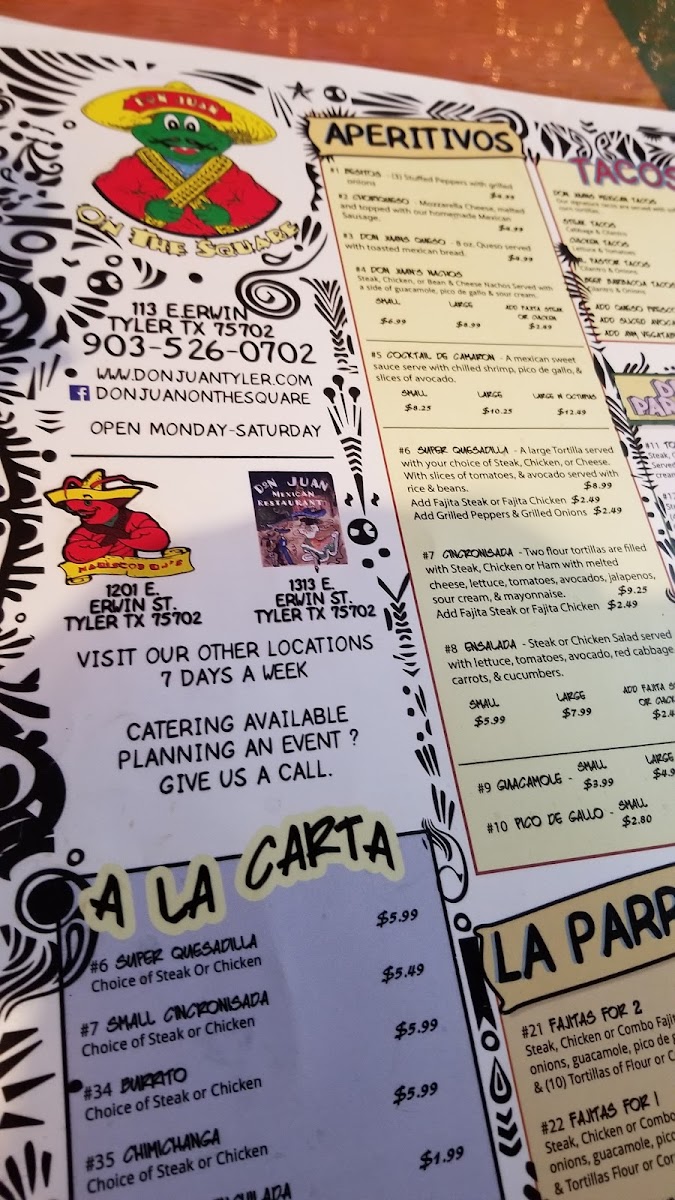 DON JUAN
ON THE SQUARE
113 E.ERWIN
TYLER TX 75702
903-526-0702
WWW.DONJUANTYLER.COM
f DONJUANONTHESQUARE
OPEN MONDAY-SATURDAY
DON JUAN
MEXICAN
RESTAURANT
1201 E.
ERWIN ST.
TYLER TX 75702
1313 E.
ERWIN ST.
TYLER TX 75702
VISIT OUR OTHER LOCATIONS
7 DAYS A WEEK
CATERING AVAILABLE
PLANNING AN EVENT ?
GIVE US A CALL.
A LA CARTA
#6 SUPER QUESADILLA $5.99
Choice of Steak Or Chicken
#7 SMALL CINCRONISADA $5.49
Choice of Steak or Chicken
#34 BURRITO $5.99
Choice of Steak or Chicken
#35 CHIMICHANGA $5.99
Choice of Steak or Chicken
$1.99
APERITIVOS
#1 - (3) Stuffed Peppers with grilled
onions
#2 - Mozzarella Cheese, melted
and topped with our homemade Mexican
Sausage.
#3 DON JUANS QUESO - 8 oz. Queso served
with toasted mexican bread.
#4 DON JUANS NACHOS
Steak, Chicken, or Bean & Cheese Nachos Served with
a side of guacamole, pico de gallo & sour cream.
SMALL LARGE ADD FAJITA STEAK
OR CHICKEN
$6.99 $8.99 $2.49
#5 COCKTAIL DE CAMARON - A mexican sweet
sauce serve with chilled shrimp, pico de gallo, &
slices of avocado.
SMALL LARGE LARGE W OCTUPUS
$8.25 $10.25 $12.49
#6 SUPER QUESADILLA - A large Tortilla served
with your choice of Steak, Chicken, or Cheese.
With slices of tomatoes, & avocado served with
rice & beans. $8.99
Add Fajita Steak or Fajita Chicken $2.49
Add Grilled Peppers & Grilled Onions $2.49
#7 CINCRONISADA - Two flour tortillas are filled
with Steak, Chicken or Ham with melted
cheese, lettuce, tomatoes, avocados, jalapenos,
sour cream, & mayonnaise. $9.25
Add Fajita Steak or Fajita Chicken $2.49
#8 ENSALADA - Steak or Chicken Salad served
with lettuce, tomatoes, avocado, red cabbage
carrots, & cucumbers.
SMALL LARGE ADD FAJITA
$5.99 $7.99
SMALL LARGE
#9 GUACAMOLE - $3.99
#10 PICO DE GALLO - SMALL
$2.80
TACOS
DON JUANS MEXICAN TACOS
STEAK TACOS
Cabbage & Cilantro
CHICKEN TACOS
Lettuce & Tomatoes
PASTOR TACOS
Cilantro & Onions
BEEF BARBACOA TACOS
Cilantro & Onions
ADD QUESO FRESCO
ADD SLICED
ADD ANY
#11
Steak,
Served
LA
#21 FAJITAS FOR 2
Steak, Chicken or Combo
onions, guacamole, pico de
& (10) Tortillas of Flour or
#22 FAJITAS FOR 1
Steak, Chicken or Combo
onions, guacamole, pico
& Tortillas Flour or